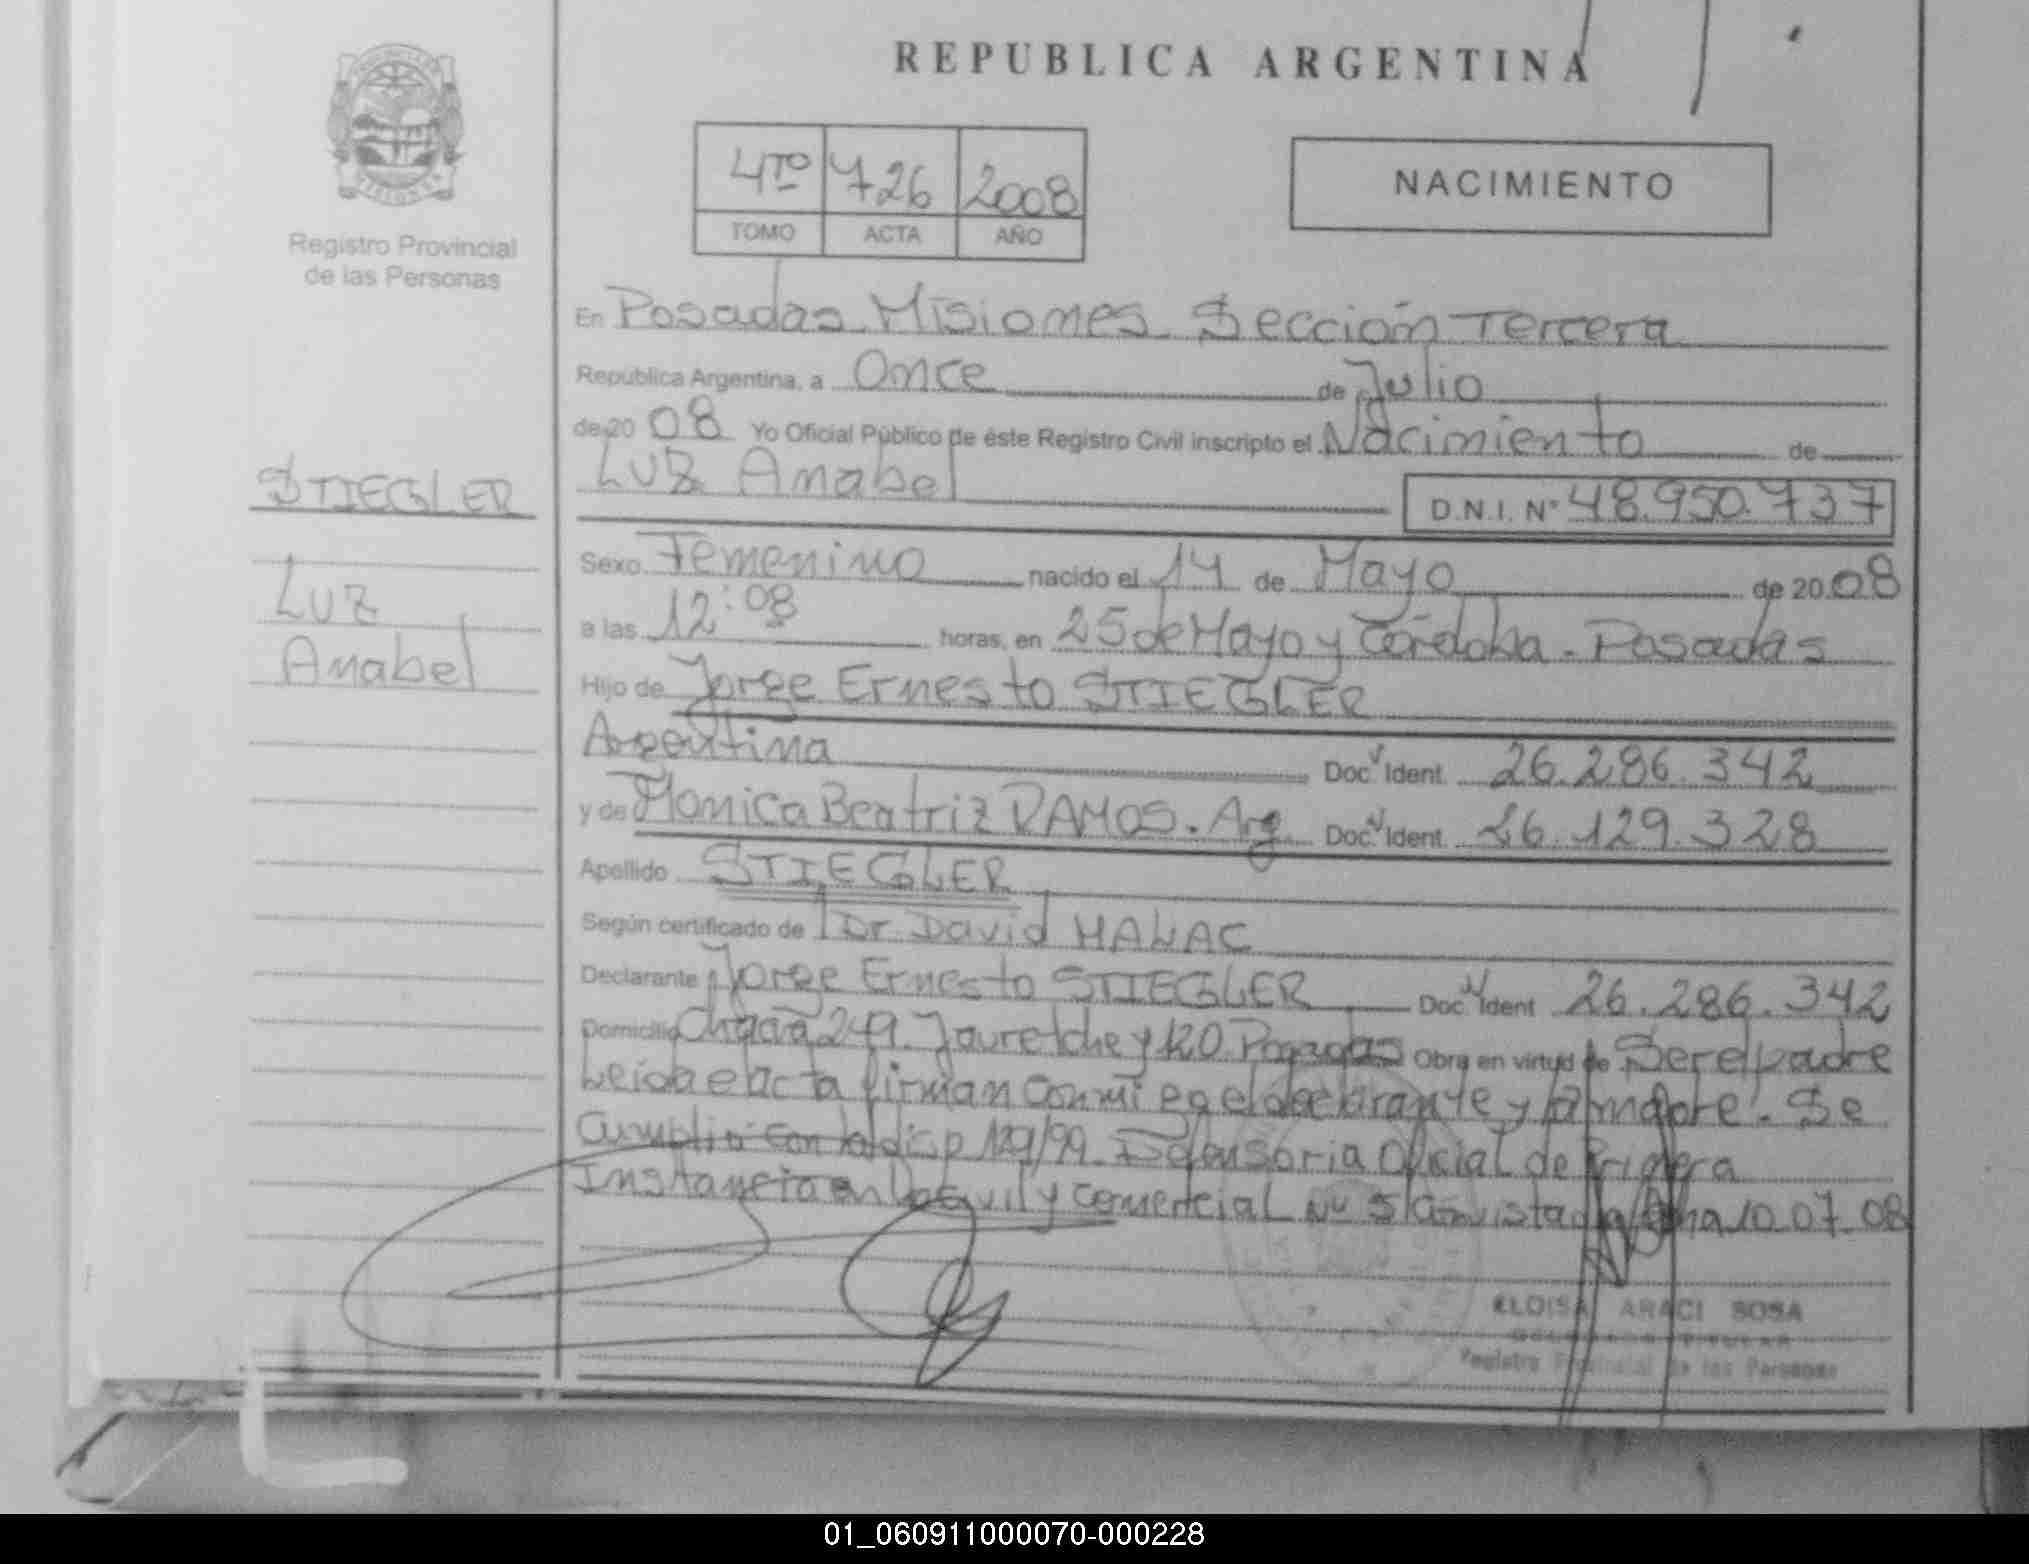 REPUBLICA ARGENTINA
4TO 726 2008
TOMO ACTA AÑO
NACIMIENTO
Registro Provincial
de las Personas
STIEGLER
Luz
Anabel
En Posadas Misiones Sección Tercera
República Argentina, a Once de Julio
de 20 08 Yo Oficial Público de éste Registro Civil inscripto el Nacimiento de
Luz Anabel D.N.I. N° 48.950.737
Sexo Femenino nacido el 14 de Mayo de 20 08
a las 12:08 horas, en 25 de Mayo y Córdoba - Posadas
Hijo de Jorge Ernesto STIEGLER
Argentina Doc. Ident. 26.286.342
y de Monica Beatriz RAMOS. Arg. Doc. Ident. 26.129.328
Apellido STIEGLER
Según certificado de Dr David
Declarante Jorge Ernesto STIEGLER Doc. Ident 26.286.342
Domicilio Chacra 249. Jauretche y 120 Posadas Obra en virtud de Ser el padre
Leida el acta firman conmigo el declarante y la madre. Se
Cumplió con la disp 129/99. Defensoria Oficial de Primera
Instancia en lo Civil y Comercial Nº 5 Con vista de fecha 10 07 08
ELOISA ARACI SOSA
Registro Provincial de las Personas
01_060911000070-000228